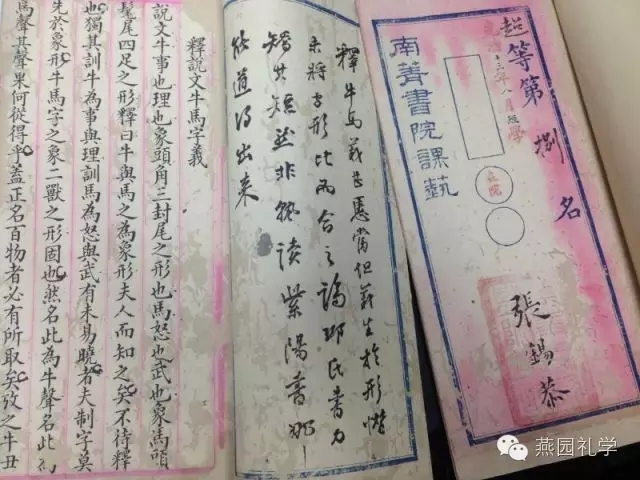 超等第捌名
光緒十二年八月經學
南菁書院課藝
張錫恭
釋牛馬義甚愿當但義生於形惜
未將字形比而合之論邵氏書乃
能道得出來
釋說文牛馬字義
說文牛事也理也象頭角三封尾之形也馬怒也武也象馬頭
髦尾四足之形釋曰牛與馬之為象形夫人而知之矣不待釋
也獨其訓牛為事與理訓馬為怒與武有未易曉者夫制字莫
先於象形牛馬字之象二獸之形固也然名此為牛聲名此為
馬聲其聲果何從得乎蓋正名百物者必有所取矣攷之牛丑
燕园礼学